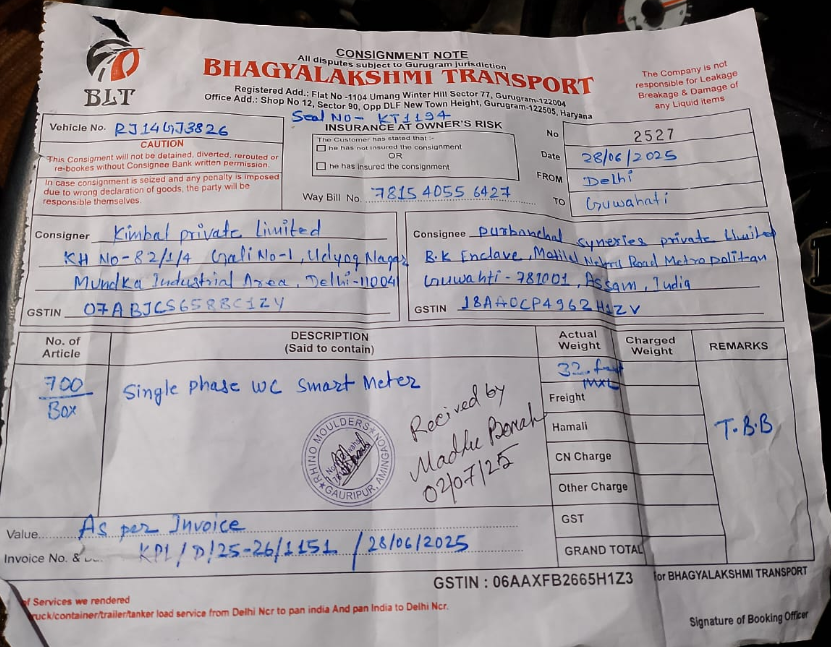 CONSIGNMENT NOTE
All disputes subject to Gurugram jurisdiction
BLT
BHAGYALAKSHMI TRANSPORT
Registered Add.: Flat No -1104 Umang Winter Hill Sector 77, Gurugram-122004
Office Add.: Shop No 12, Sector 90, Opp DLF New Town Height, Gurugram-122505, Haryana
The Company is not
responsible for Leakage
Breakage & Damage of
any Liquid items
Seal No- KT1194
Vehicle No. RJ14GJ3826
CAUTION
This Consignment will not be detained, diverted, rerouted or
re-bookes without Consignee Bank written permission.
In case consignment is seized and any penalty is imposed
due to wrong declaration of goods, the party will be
responsible themselves.
INSURANCE AT OWNER'S RISK
The Customer has stated that :-
he has not insured the consignment
OR
he has insured the consignment
Way Bill No. 7815 4055 6427
No 2527
Date 28/06/2025
FROM Delhi
TO Guwahati
Consigner Kimbal private limited
KH No-82/1/4 Gali No-1, Udyog Nagar
Mundka Industrial Area, Delhi-110041
GSTIN 07ABJCS6588C1ZY
Consignee purbanchal syneries private limited
B.K Enclave, Nehru Road Metropolitan
Guwahti-781001, Assam, India
GSTIN 18AAOCP4962H1ZV
No. of
Article
DESCRIPTION
(Said to contain)
Actual
Weight
Charged
Weight
REMARKS
700
Box
Single phase WC Smart Meter
32
MXL
Freight
Hamali
CN Charge
Other Charge
GST
GRAND TOTAL
T.B.B
RHINO MOULDERS
GAURIPUR, AMINGAON
Recived by
Madhu
02/07/25
Value As per Invoice
Invoice No. & KPL/D/25-26/1151 /28/06/2025
GSTIN : 06AAXFB2665H1Z3
for BHAGYALAKSHMI TRANSPORT
of Services we rendered
ruck/container/trailer/tanker load service from Delhi Ncr to pan india And pan India to Delhi Ncr.
Signature of Booking Officer